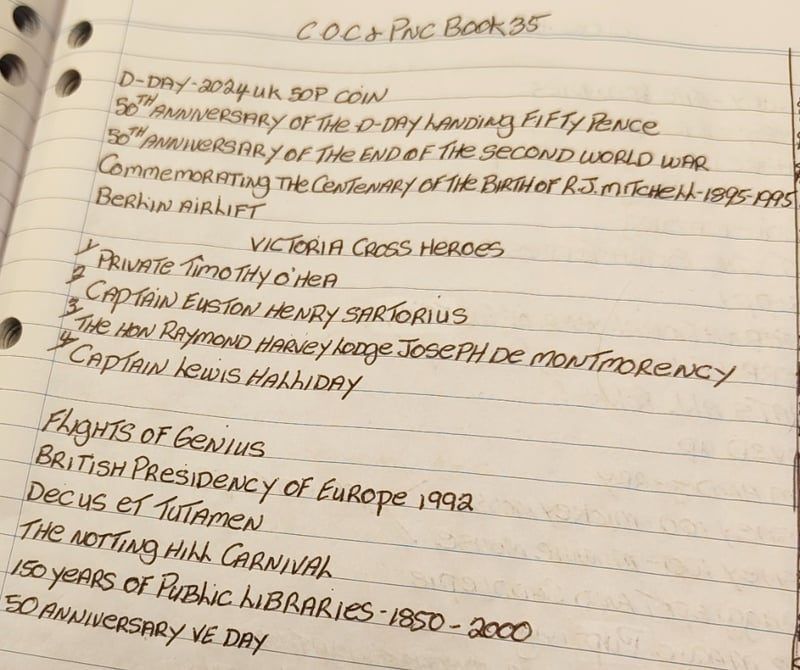 C.O.C & PNC BOOK 35
D-DAY-2024 UK 50P COIN
50TH ANNIVERSARY OF THE D-DAY LANDING FIFTY PENCE
50TH ANNIVERSARY OF THE END OF THE SECOND WORLD WAR
COMMEMORATING THE CENTENARY OF THE BIRTH OF R.J. MITCHELL-1895-1995
BERLIN AIRLIFT
VICTORIA CROSS HEROES
1 PRIVATE TIMOTHY O'HEA
2 CAPTAIN EUSTON HENRY SARTORIUS
3 THE HON RAYMOND HARVEY LODGE JOSEPH DE MONTMORENCY
4 CAPTAIN LEWIS HALLIDAY
FLIGHTS OF GENIUS
BRITISH PRESIDENCY OF EUROPE 1992
DECUS ET TUTAMEN
THE NOTTING HILL CARNIVAL
150 YEARS OF PUBLIC LIBRARIES - 1850 - 2000
50 ANNIVERSARY VE DAY